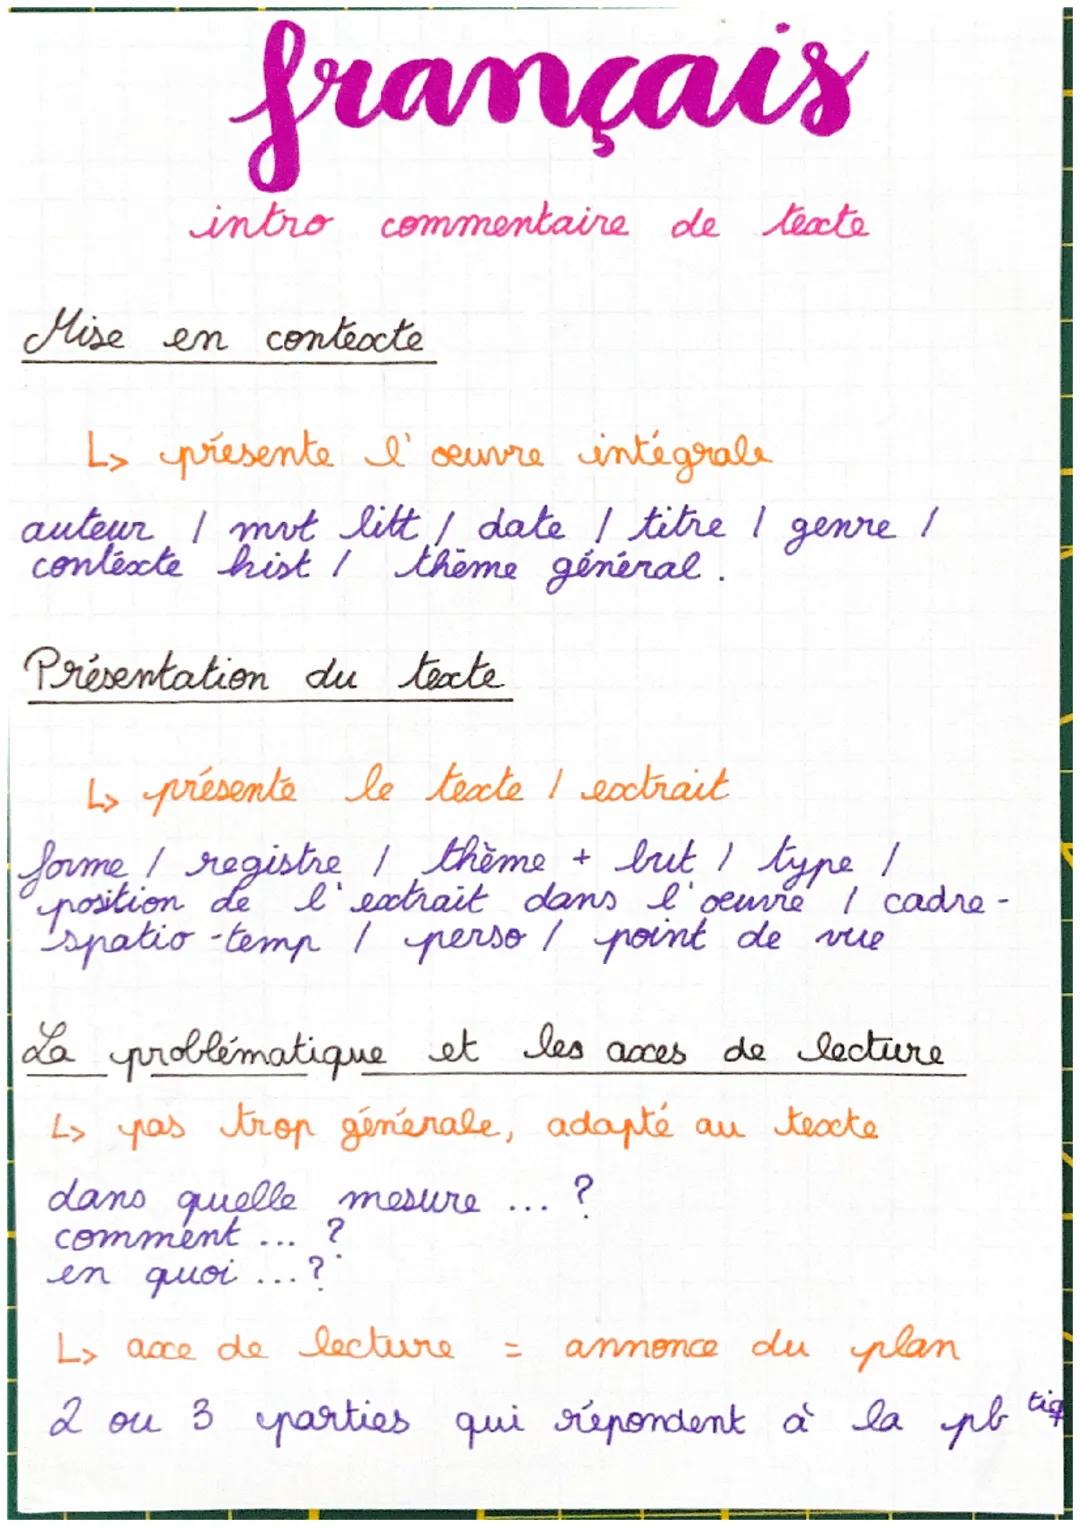 français
intro commentaire de texte
Mise en contexte
↳ présente l'œuvre intégrale
auteur / mvt litt / date / titre / genre /
contexte hist / thème général.
Présentation du texte
↳ présente le texte / extrait
forme / registre / thème + but / type /
position de l'extrait dans l'œuvre / cadre-
spatio-temp / perso / point de vue
La problématique et les axes de lecture
↳ pas trop générale, adapté au texte
dans quelle mesure ... ?
comment ... ?
en quoi ... ?
↳ axe de lecture = annonce du plan
2 ou 3 parties qui répondent à la pb tiq